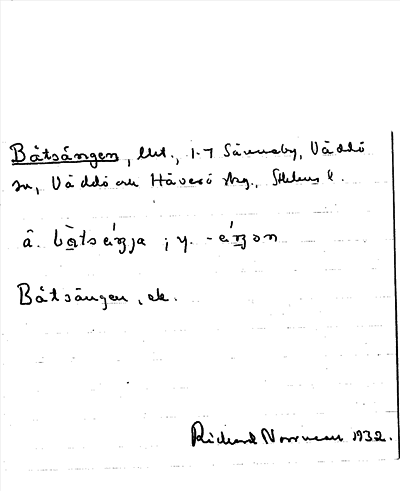 Båtsängen, 1-7 Sånnaby, Väddö
sn, Väddö och Häverö skg., Sthlms l.
ä. bàtséŋja ; y. -éŋən
Båtsängen, ek.
Richard Norrman 1932.